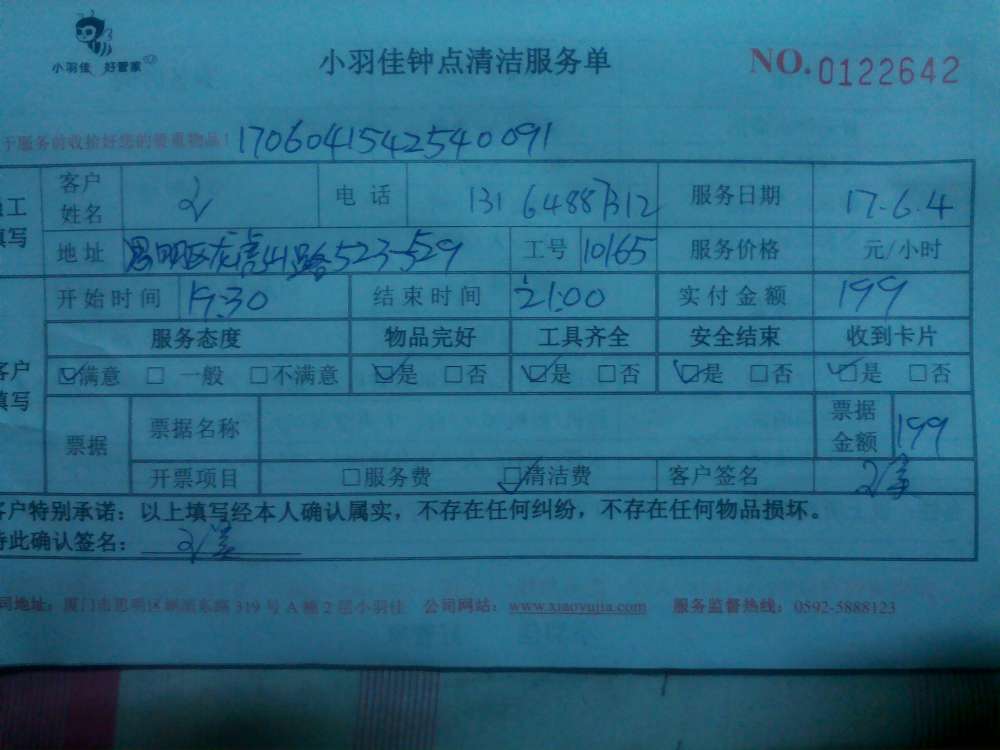 小羽佳 好管家
小羽佳钟点清洁服务单
NO.0122642
于服务前收拾好您的贵重物品！ 1706041542540091
工填写
客户姓名 电话 服务日期 17.6.4
地址 思明区龙虎山路523-529 工号 10165 服务价格 元/小时
开始时间 19:30 结束时间 21:00 实付金额 199
客户填写
服务态度 物品完好 工具齐全 安全结束 收到卡片
☑满意 □一般 □不满意 ☑是 □否 ☑是 □否 ☑是 □否 ☑是 □否
票据 票据名称 票据金额 199
开票项目 □服务费 ☑清洁费 客户签名
客户特别承诺：以上填写经本人确认属实，不存在任何纠纷，不存在任何物品损坏。
特此确认签名：
司地址：厦门市思明区湖滨东路319号A栋2层小羽佳 公司网站：www.xiaoyujia.com 服务监督热线：0592-5888123